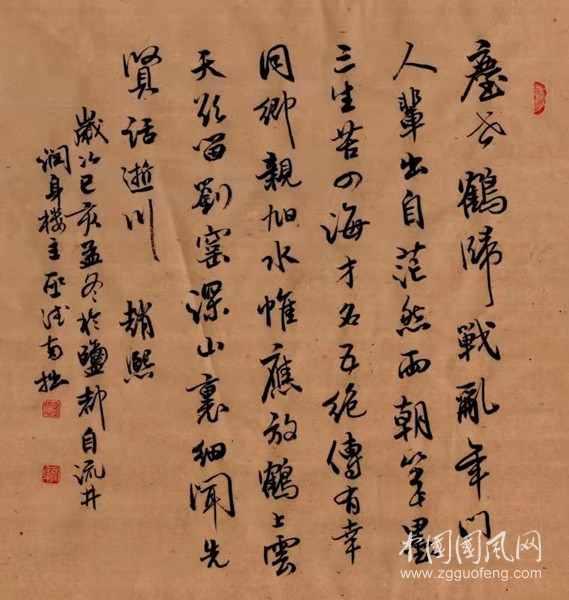 塵世鶴歸戰亂年門
人輩出自茫然兩朝筆墨
三生苦四海才名五絕傳有幸
同鄉親旭水惟應放鶴上雲
天欲留劉窯深山裏細聞先
賢話逝川 趙熙
歲次己亥孟冬於鹽都自流井
潤身樓主南拙
中國國風网
www.zgguofeng.com